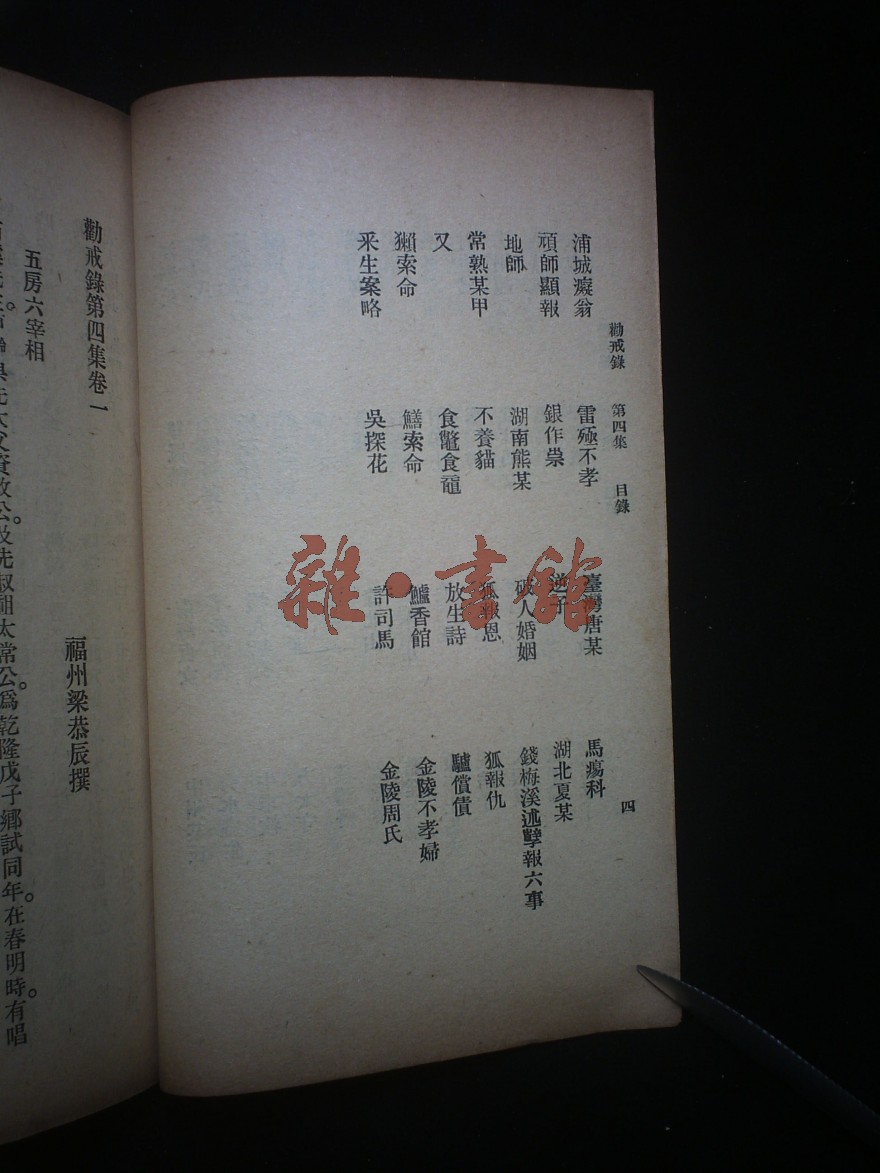 勸戒錄 第四集 目錄 四
浦城癡翁 雷殛不孝 臺灣唐某 馬瘍科
頑師顯報 銀作祟 逆子 湖北夏某
地師 湖南熊某 破人婚姻 錢梅溪述孽報六事
常熟某甲 不養貓 狐報恩 狐報仇
又 食鼈食黿 放生詩 驢償債
獺索命 鱔索命 鱸香館 金陵不孝婦
釆生案略 吳探花 許司馬 金陵周氏
雜·書館
勸戒錄第四集卷一
福州梁恭辰撰
五房六宰相
太常公。爲乾隆戊子鄉試同年。在春明時。有唱